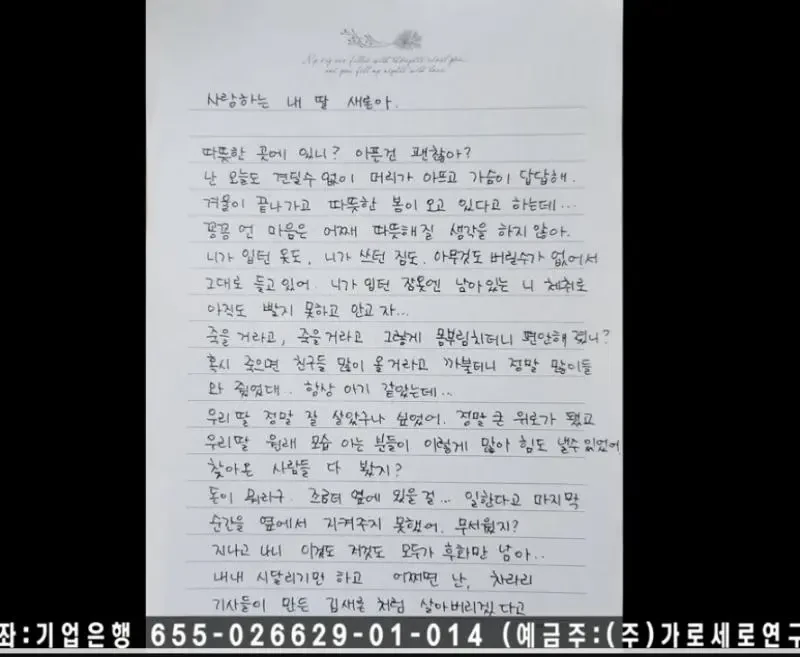 사랑하는 내 딸 새론아.
따뜻한 곳에 있니? 아픈건 괜찮아?
난 오늘도 견딜수 없이 머리가 아프고 가슴이 답답해.
겨울이 끝나가고 따뜻한 봄이 오고 있다고 하는데...
꽁꽁 언 마음은 어째 따뜻해질 생각을 하지 않아.
니가 입던 옷도, 니가 쓰던 짐도. 아무것도 버릴수가 없어서
그대로 들고 있어. 니가 입던 잠옷엔 남아있는 니 체취로
아직도 빨지 못하고 안고 자...
죽을거라고, 죽을거라고 그렇게 몸부림치더니 편안해 졌니?
혹시 죽으면 친구들 많이 올거라고 까불더니 정말 많이들
와 줬었대.. 항상 아기 같았는데...
우리딸 정말 잘 살았구나 싶었어. 정말 큰 위로가 됐고
우리딸 원래 모습 아는 분들이 이렇게 많아 힘도 낼수 있었어
찾아온 사람들 다 봤지?
돈이 뭐라구. 조금더 옆에 있을걸... 일한다고 마지막
순간을 옆에서 지켜주지 못했어. 무서웠지?
지나고 나니 이것도 저것도 모두가 후회만 남아..
내내 시달리기만 하고 어쩌면 난, 차라리
기사들이 만든 김새론 처럼 살아버리겠다고
좌:기업은행 655-026629-01-014 (예금주:(주)가로세로연구